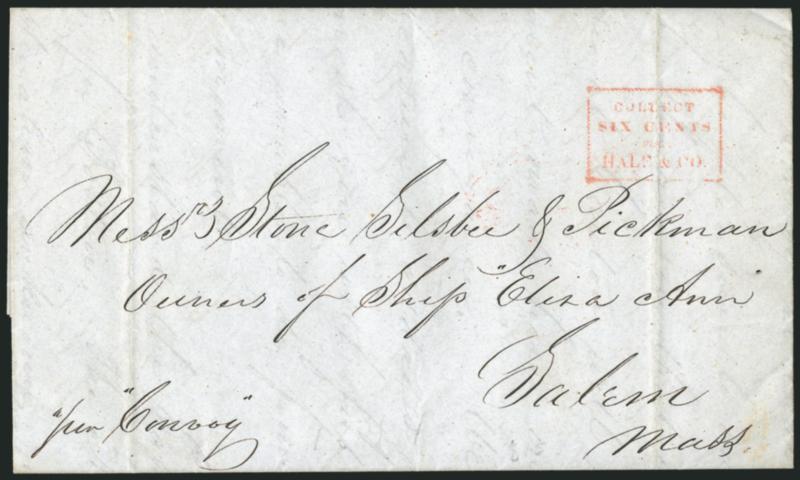 COLLECT
SIX CENTS
FOR
HALE & CO.
Messrs Stone Silsbee & Pickman
Owners of Ship "Eliza Ann"
Salem
Mass.
"per "Convoy"